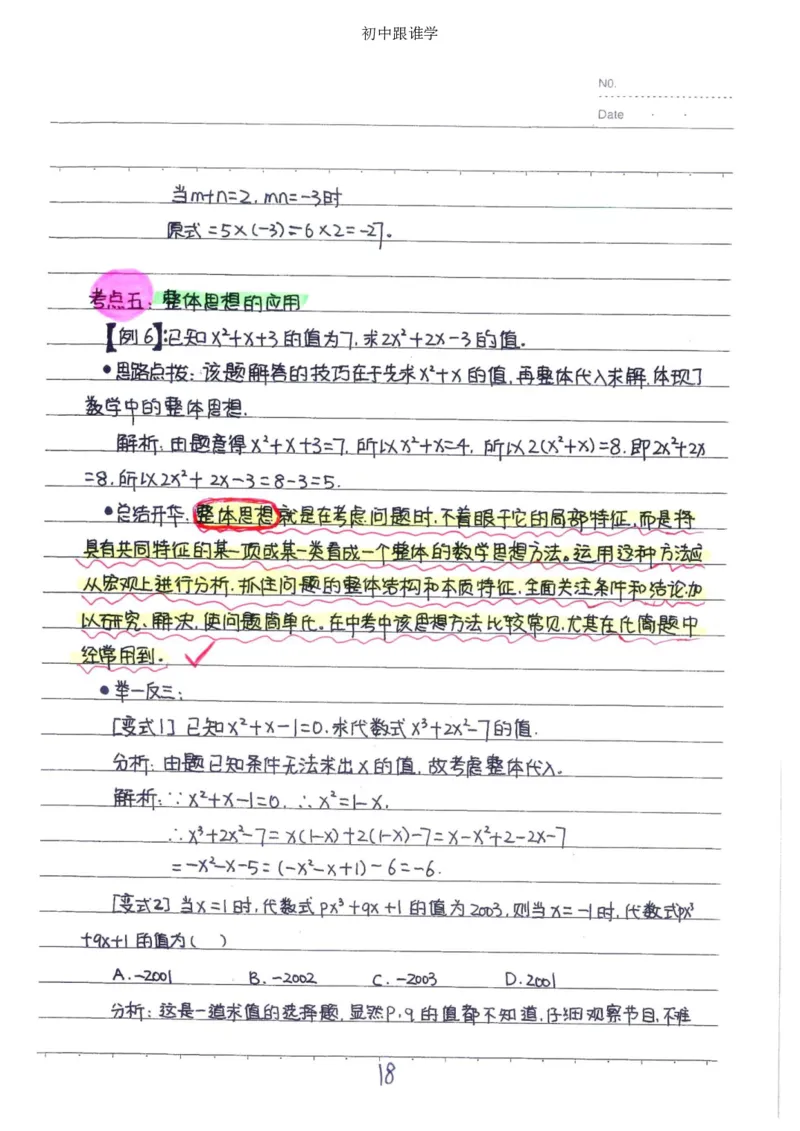 初中跟谁学
N0.
Date · ·
当m+n=2, mn=-3时
原式=5×(-3)-6×2=-27。
考点五:整体思想的应用
【例6】:已知x²+x+3的值为7,求2x²+2x-3的值。
•思路点拨:该题解答的技巧在于先求x²+x的值,再整体代入求解,体现了
数学中的整体思想.
解析:由题意得x²+x+3=7,所以x²+x=4,所以2(x²+x)=8,即2x²+2x
=8,所以2x²+2x-3=8-3=5.
•总结升华:整体思想就是在考虑问题时,不着眼于它的局部特征,而是将
具有共同特征的某一项或某一类看成一个整体的数学思想方法。运用这种方法应
从宏观上进行分析,抓住问题的整体结构和本质特征,全面关注条件和结论,加
以研究、解决,使问题简单化。在中考中该思想方法比较常见,尤其在化简题中
经常用到。
•举一反三:
[变式1] 已知x²+x-1=0,求代数式x³+2x²-7的值.
分析:由题已知条件无法求出x的值,故考虑整体代入。
解析:∵x²+x-1=0,∴x²=1-x,
∴x³+2x²-7=x(1-x)+2(1-x)-7=x-x²+2-2x-7
=-x²-x-5=(-x²-x+1)-6=-6.
[变式2] 当x=1时,代数式px³+qx+1的值为2003,则当x=-1时,代数式px³
+qx+1的值为( )
A.-2001 B.-2002 C.-2003 D.2001
分析:这是一道求值的选择题,显然p,q的值都不知道,仔细观察节目,不难
18